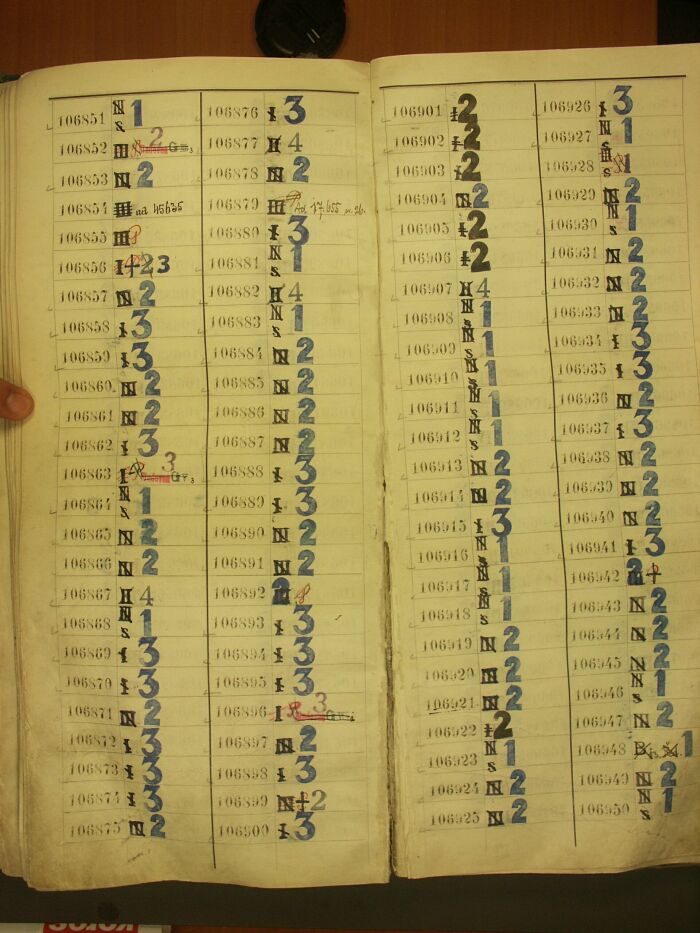 106851 N s 1
106852 III 2
106853 N 2
106854 III ad 45635
106855 III
106856 I + 2 3
106857 N 2
106858 I 3
106859 I 3
106860 N 2
106861 N 2
106862 I 3
106863 I 3
106864 N s 1
106865 N 2
106866 N 2
106867 H 4
106868 N s 1
106869 I 3
106870 I 3
106871 N 2
106872 I 3
106873 I 3
106874 I 3
106875 N 2
106876 I 3
106877 H 4
106878 N 2
106879 III Ad 17,655
106880 I 3
106881 N s 1
106882 H 4
106883 N s 1
106884 N 2
106885 N 2
106886 N 2
106887 N 2
106888 I 3
106889 I 3
106890 N 2
106891 N 2
106892 2
106893 I 3
106894 I 3
106895 I 3
106896 I 3
106897 N 2
106898 I 3
106899 N 2
106900 I 3
106901 I 2
106902 I 2
106903 I 2
106904 N 2
106905 I 2
106906 I 2
106907 H 4
106908 N s 1
106909 N s 1
106910 N s 1
106911 N s 1
106912 N s 1
106913 N 2
106914 N 2
106915 I 3
106916 N s 1
106917 N s 1
106918 N s 1
106919 N 2
106920 N 2
106921 N 2
106922 I 2
106923 N s 1
106924 N 2
106925 N 2
106926 I 3
106927 N s 1
106928 s 1
106929 N 2
106930 N s 1
106931 N 2
106932 N 2
106933 N 2
106934 I 3
106935 I 3
106936 N 2
106937 I 3
106938 N 2
106939 N 2
106940 N 2
106941 I 3
106942 2
106943 N 2
106944 N 2
106945 N 2
106946 N s 1
106947 N 2
106948 1
106949 N 2
106950 N s 1